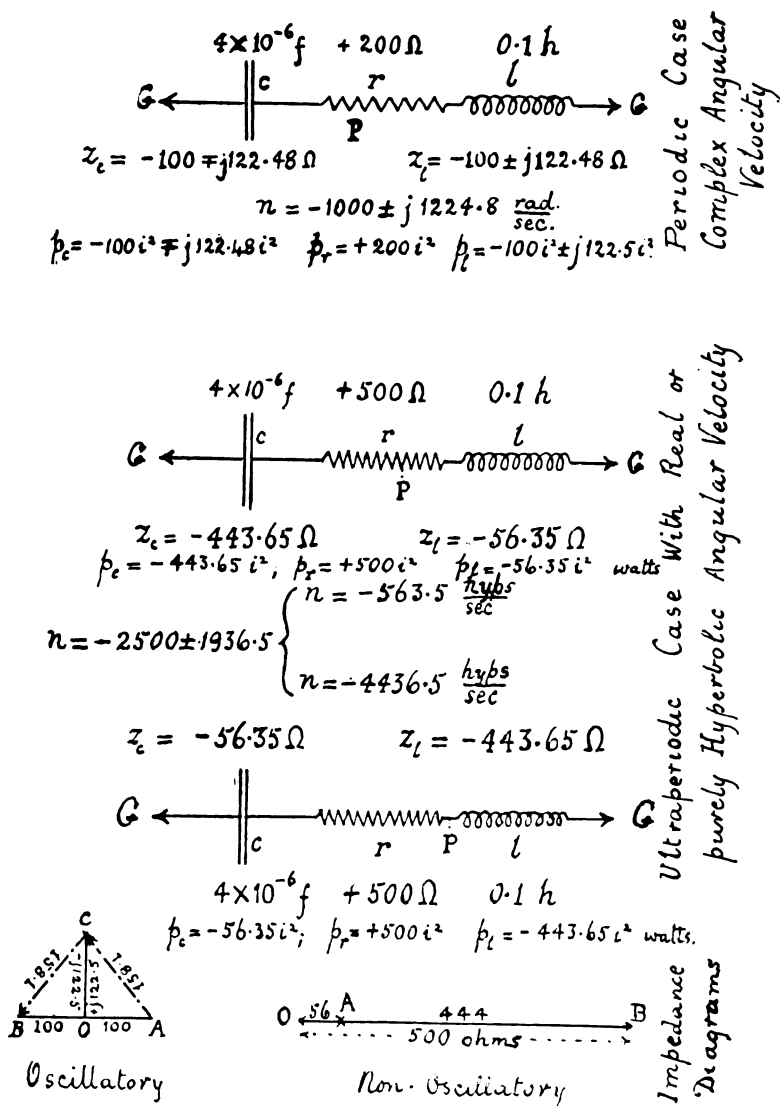 4×10⁻⁶f +200Ω 0·1 h
G c r l G
P
z_c = -100∓j122·48Ω z_l = -100±j122·48Ω
n = -1000±j1224·8 rad./sec.
p_c = -100i²∓j122·48i² p_r = +200i² p_l = -100i²±j122·5i²
Periodic Case
Complex Angular
Velocity
4×10⁻⁶f +500Ω 0·1 h
G c r l G
P
z_c = -443·65Ω z_l = -56·35Ω
p_c = -443·65i²; p_r = +500i² p_l = -56·35i² watts
n = -563·5 hyps/sec
n = -2500±1936·5
n = -4436·5 hyps/sec
z_c = -56·35Ω z_l = -443·65Ω
G c r P l G
4×10⁻⁶f +500Ω 0·1 h
p_c = -56·35i²; p_r = +500i² p_l = -443·65i² watts.
Ultraperiodic Case With Real or
purely Hyperbolic Angular Velocity
C
158·1 -j122·5 +j122·5 158·1
B 100 O 100 A
Oscillatory
O 56 A 444 B
500 ohms
Non-Oscillatory
Impedance
Diagrams